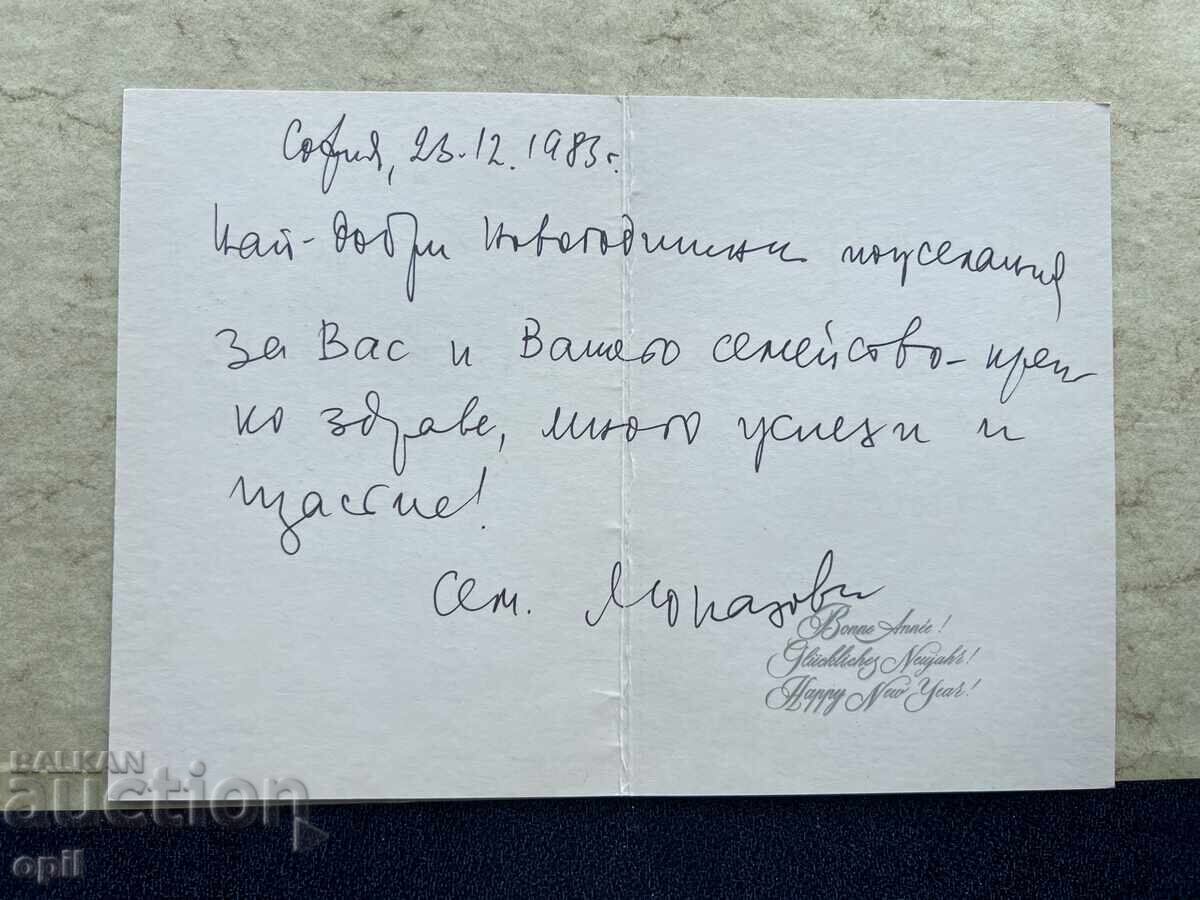 София, 23.12.1983 г.
Най-добри Новогодишни пожелания
за Вас и Вашето семейство - креп
ко здраве, много успехи и
щастие!
Сем.
Bonne Année!
Glückliches Neujahr!
Happy New Year!
BALKAN
auction
opil